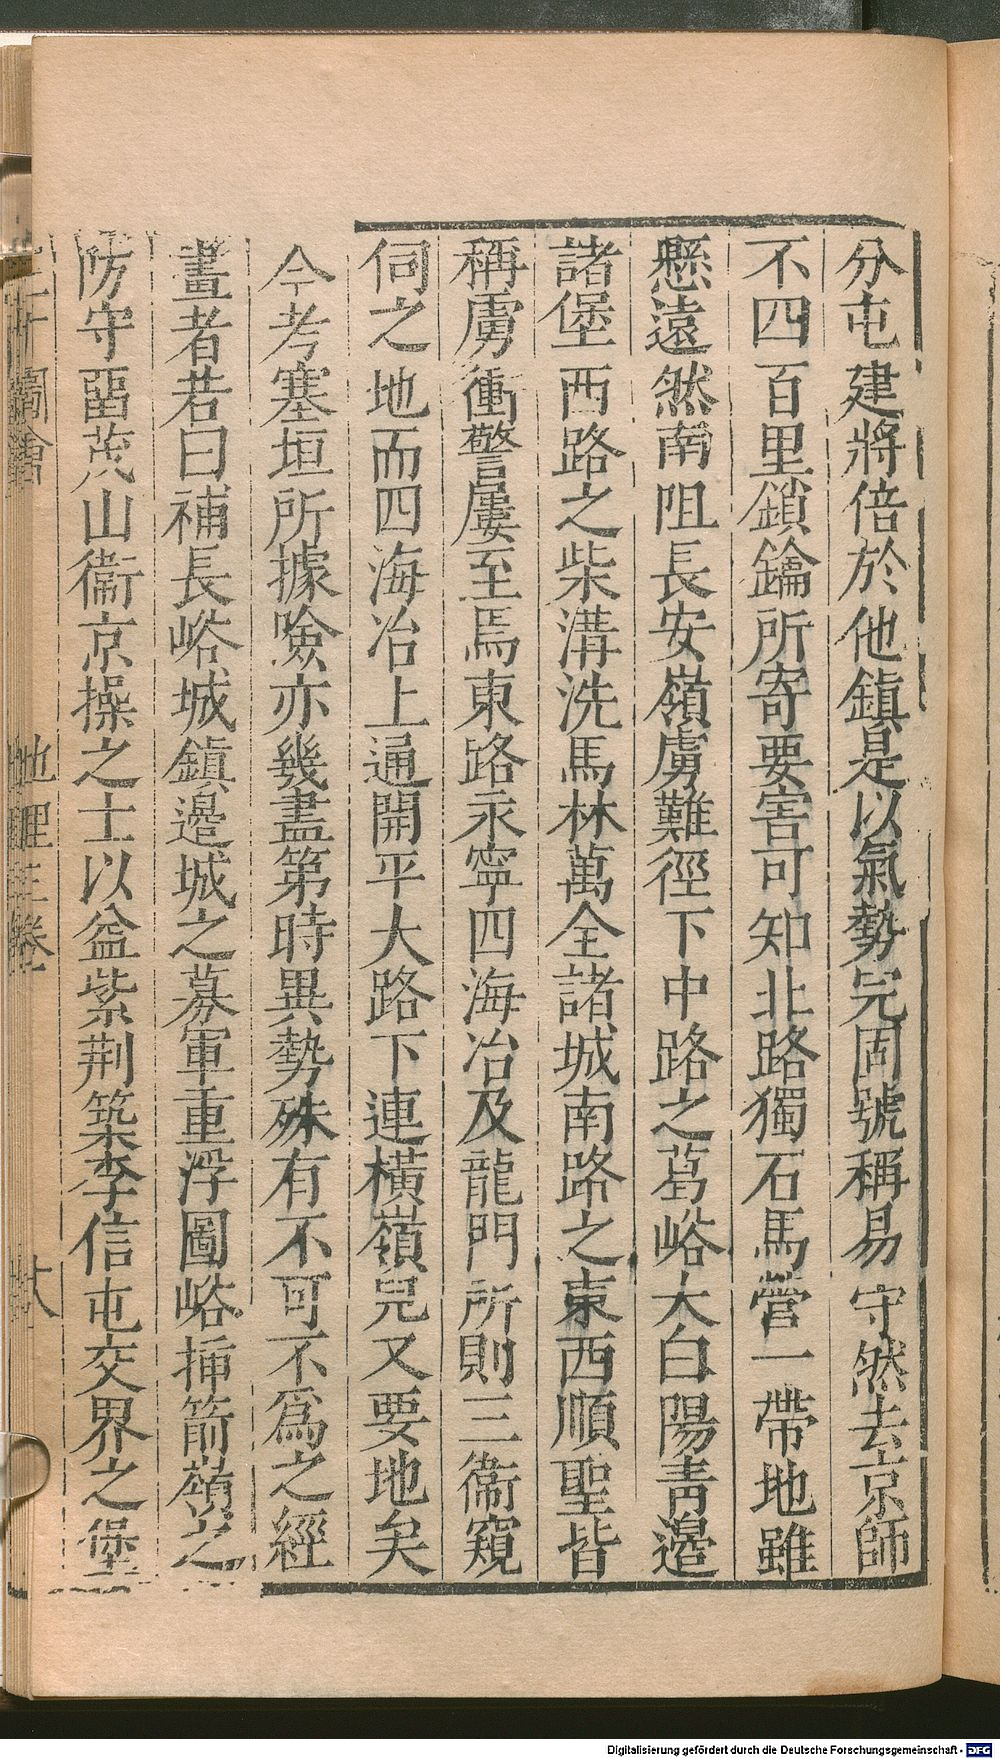 分屯建將倍於他鎮是以氣勢完固號稱易守然去京師
不四百里鎖鑰所寄要害可知北路獨石馬營一帶地雖
懸遠然南阻長安嶺虜難徑下中路之葛峪大白陽青邉
諸堡西路之柴溝洗馬林萬全諸城南路之東西順聖皆
稱虜衝警屢至焉東路永寧四海冶及龍門所則三衛窺
伺之地而四海冶上通開平大路下連橫嶺皃又要地矣
今考塞垣所據險亦幾盡第時異勢殊有不可不爲之經
畫者若曰補長峪城鎮邉城之募軍重浮圖峪揷箭嶺之
防守畱茂山衞京操之士以益紫荆築李信屯交界之堡
地理三卷
Digitalisierung gefördert durch die Deutsche Forschungsgemeinschaft - DFG